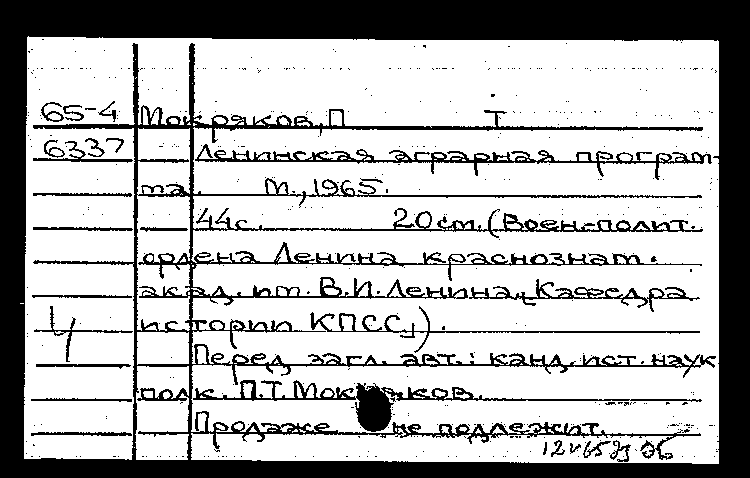 65-4 Мокряков, П Т
6337 Ленинская аграрная програм-
ма. М., 1965.
44с. 20см. (Воен.-полит.
ордена Ленина краснознам.
акад. им. В.И.Ленина. Кафедра
истории КПСС).
Перед загл. авт.: канд. ист. наук
полк. П.Т. Мокряков.
Продаже не подлежит.